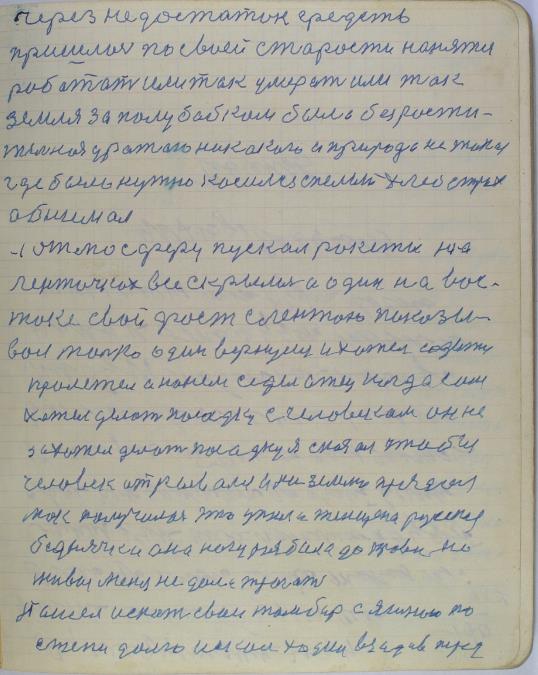 через недостаток средств
пришлоя по своей старости наняти
работати или так умерат или так
земля за полубабком была безрости-
тилноя уражаю никакого и природа не така
где было нужно косился спелий хлеб страх
обнемал
Я отмосферу пускал ракети на
ленточках все скрылис а один на вос-
токе свой фрост слентою показы-
вол толко один вернулця и хотел
пролетел а нанем сидел отец когда сам
хотел делат посадку с человеком он не
захотел делат посадку я сказал чтоби
человек отрывалця и на землю
так получилоя что упала женщена руская
беднячка она ногу розбила до крови но
живая меня не дала трогат
Пашел искат свой томбер с
степи долго искал ходил